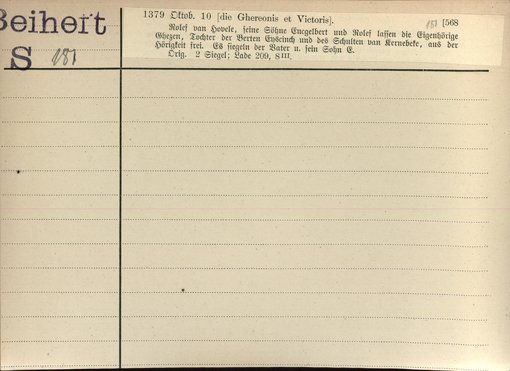 Beiheft
S 181
1379 Oktob. 10 [die Ghereonis et Victoris]. 181 [568
Rolef van Hovele, seine Söhne Engelbert und Rolef lassen die Eigenhörige
Ghezen, Tochter der Berten und des Schulten van Kernebeke, aus der
Hörigkeit frei. Es siegeln der Vater u. sein Sohn E.
Orig. 2 Siegel; Lade 209, 8 III.